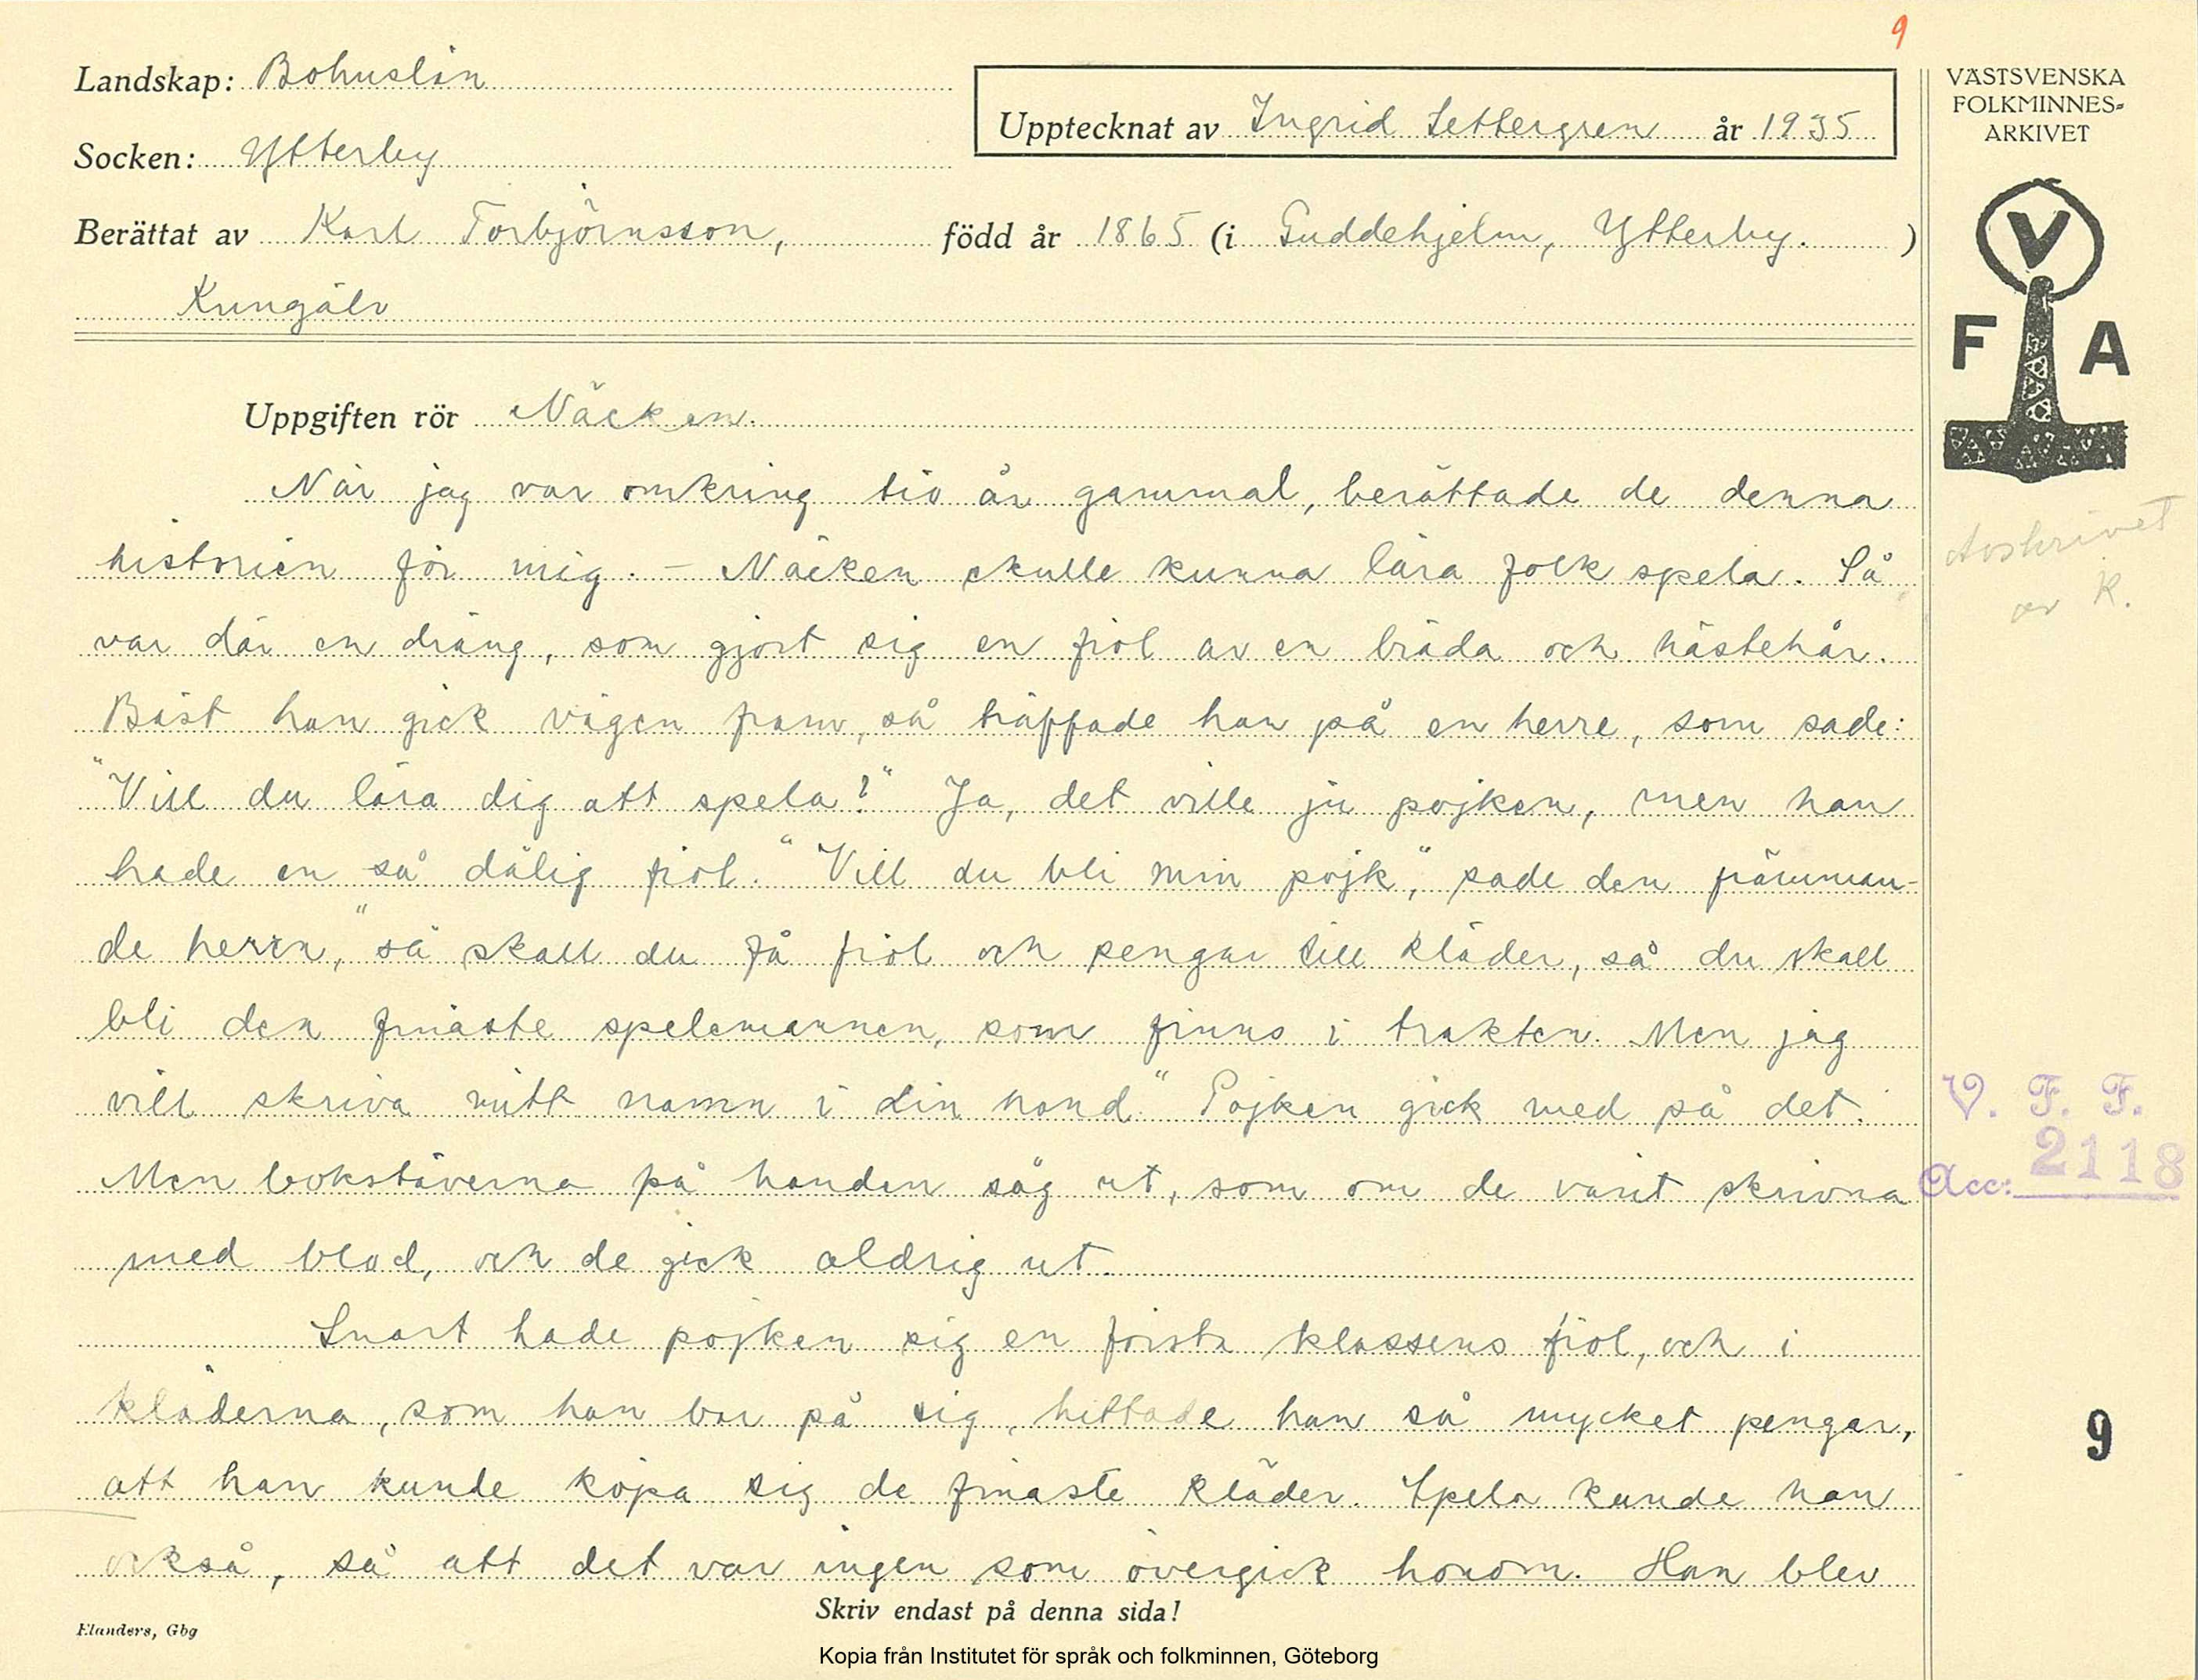 9
Landskap: Bohuslän
Socken: Ytterby
Upptecknat av Ingrid Settergren år 1935
Berättat av Karl Torbjörnsson, född år 1865 (i Guddehjelm, Ytterby. )
Kungälv
VÄSTSVENSKA
FOLKMINNES-
ARKIVET
V
F A
Uppgiften rör Näcken.
När jag var omkring tio år gammal, berättade de denna
historien för mig. - Näcken skulle kunna lära folk spela. Så
var där en dräng, som gjort sig en fiol av en bräda och hästehår.
Bäst han gick vägen fram, så träffade han på en herre, som sade:
"Vill du lära dig att spela?" Ja, det ville ju pojken, men han
hade en så dålig fiol. "Vill du bli min pojk", sade den främman-
de herrn, "så skall du få fiol och pengar till kläder, så du skall
bli den finaste spelemannen, som finns i trakten. Men jag
vill skriva mitt namn i din hand." Pojken gick med på det.
Men bokstäverna på handen såg ut, som om de varit skrivna
med blod, och de gick aldrig ut.
Snart hade pojken sig en första klassens fiol, och i
kläderna, som han bar på sig, hittade han så mycket pengar,
att han kunde köpa sig de finaste kläder. Spela kunde han
också, så att det var ingen som övergick honom. Han blev
Avskrivet
av K.
V. F. F.
Acc: 2118
9
Skriv endast på denna sida!
Elanders, Gbg
Kopia från Institutet för språk och folkminnen, Göteborg